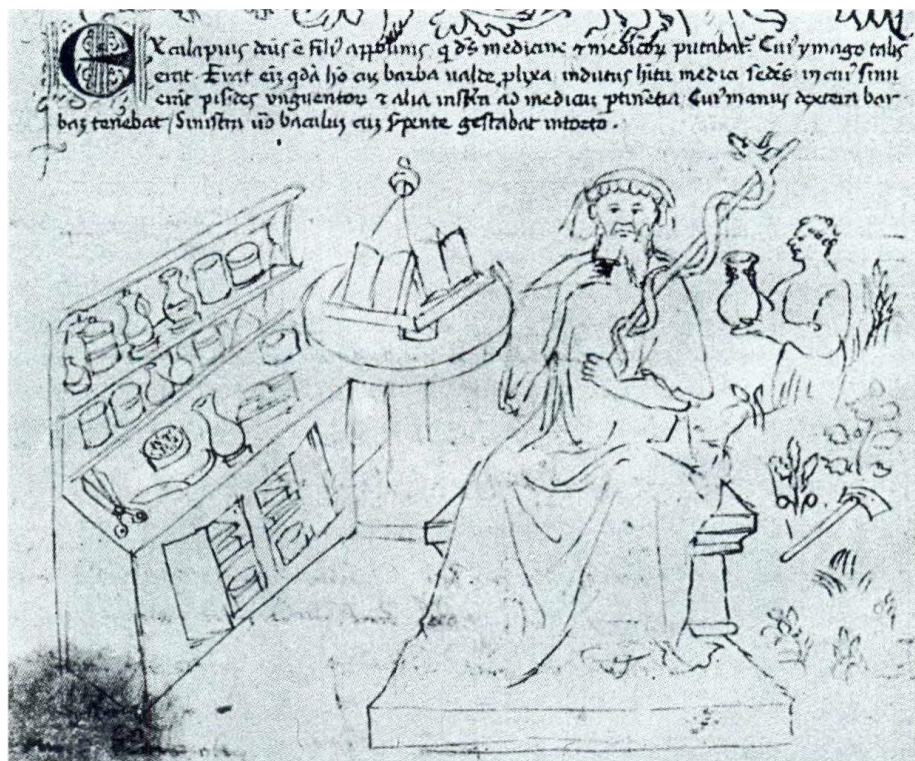 Excalapius deus ē filiꝰ appolinis q̄ dꝰs medicine ⁊ medicoꝝ putabat̄ Cuiꝰ ymago talis
erat Erat eī qdā hō cū barba ualde plixa indutus hitu medici sedēs in cuiꝰ sinu
erāt pisides unguentoꝝ ⁊ alia instrā ad medicū ptinētia Cuiꝰ manus dextera bar
baȝ tenebat Sinistra uō baculū cū spente gestabat intorto.